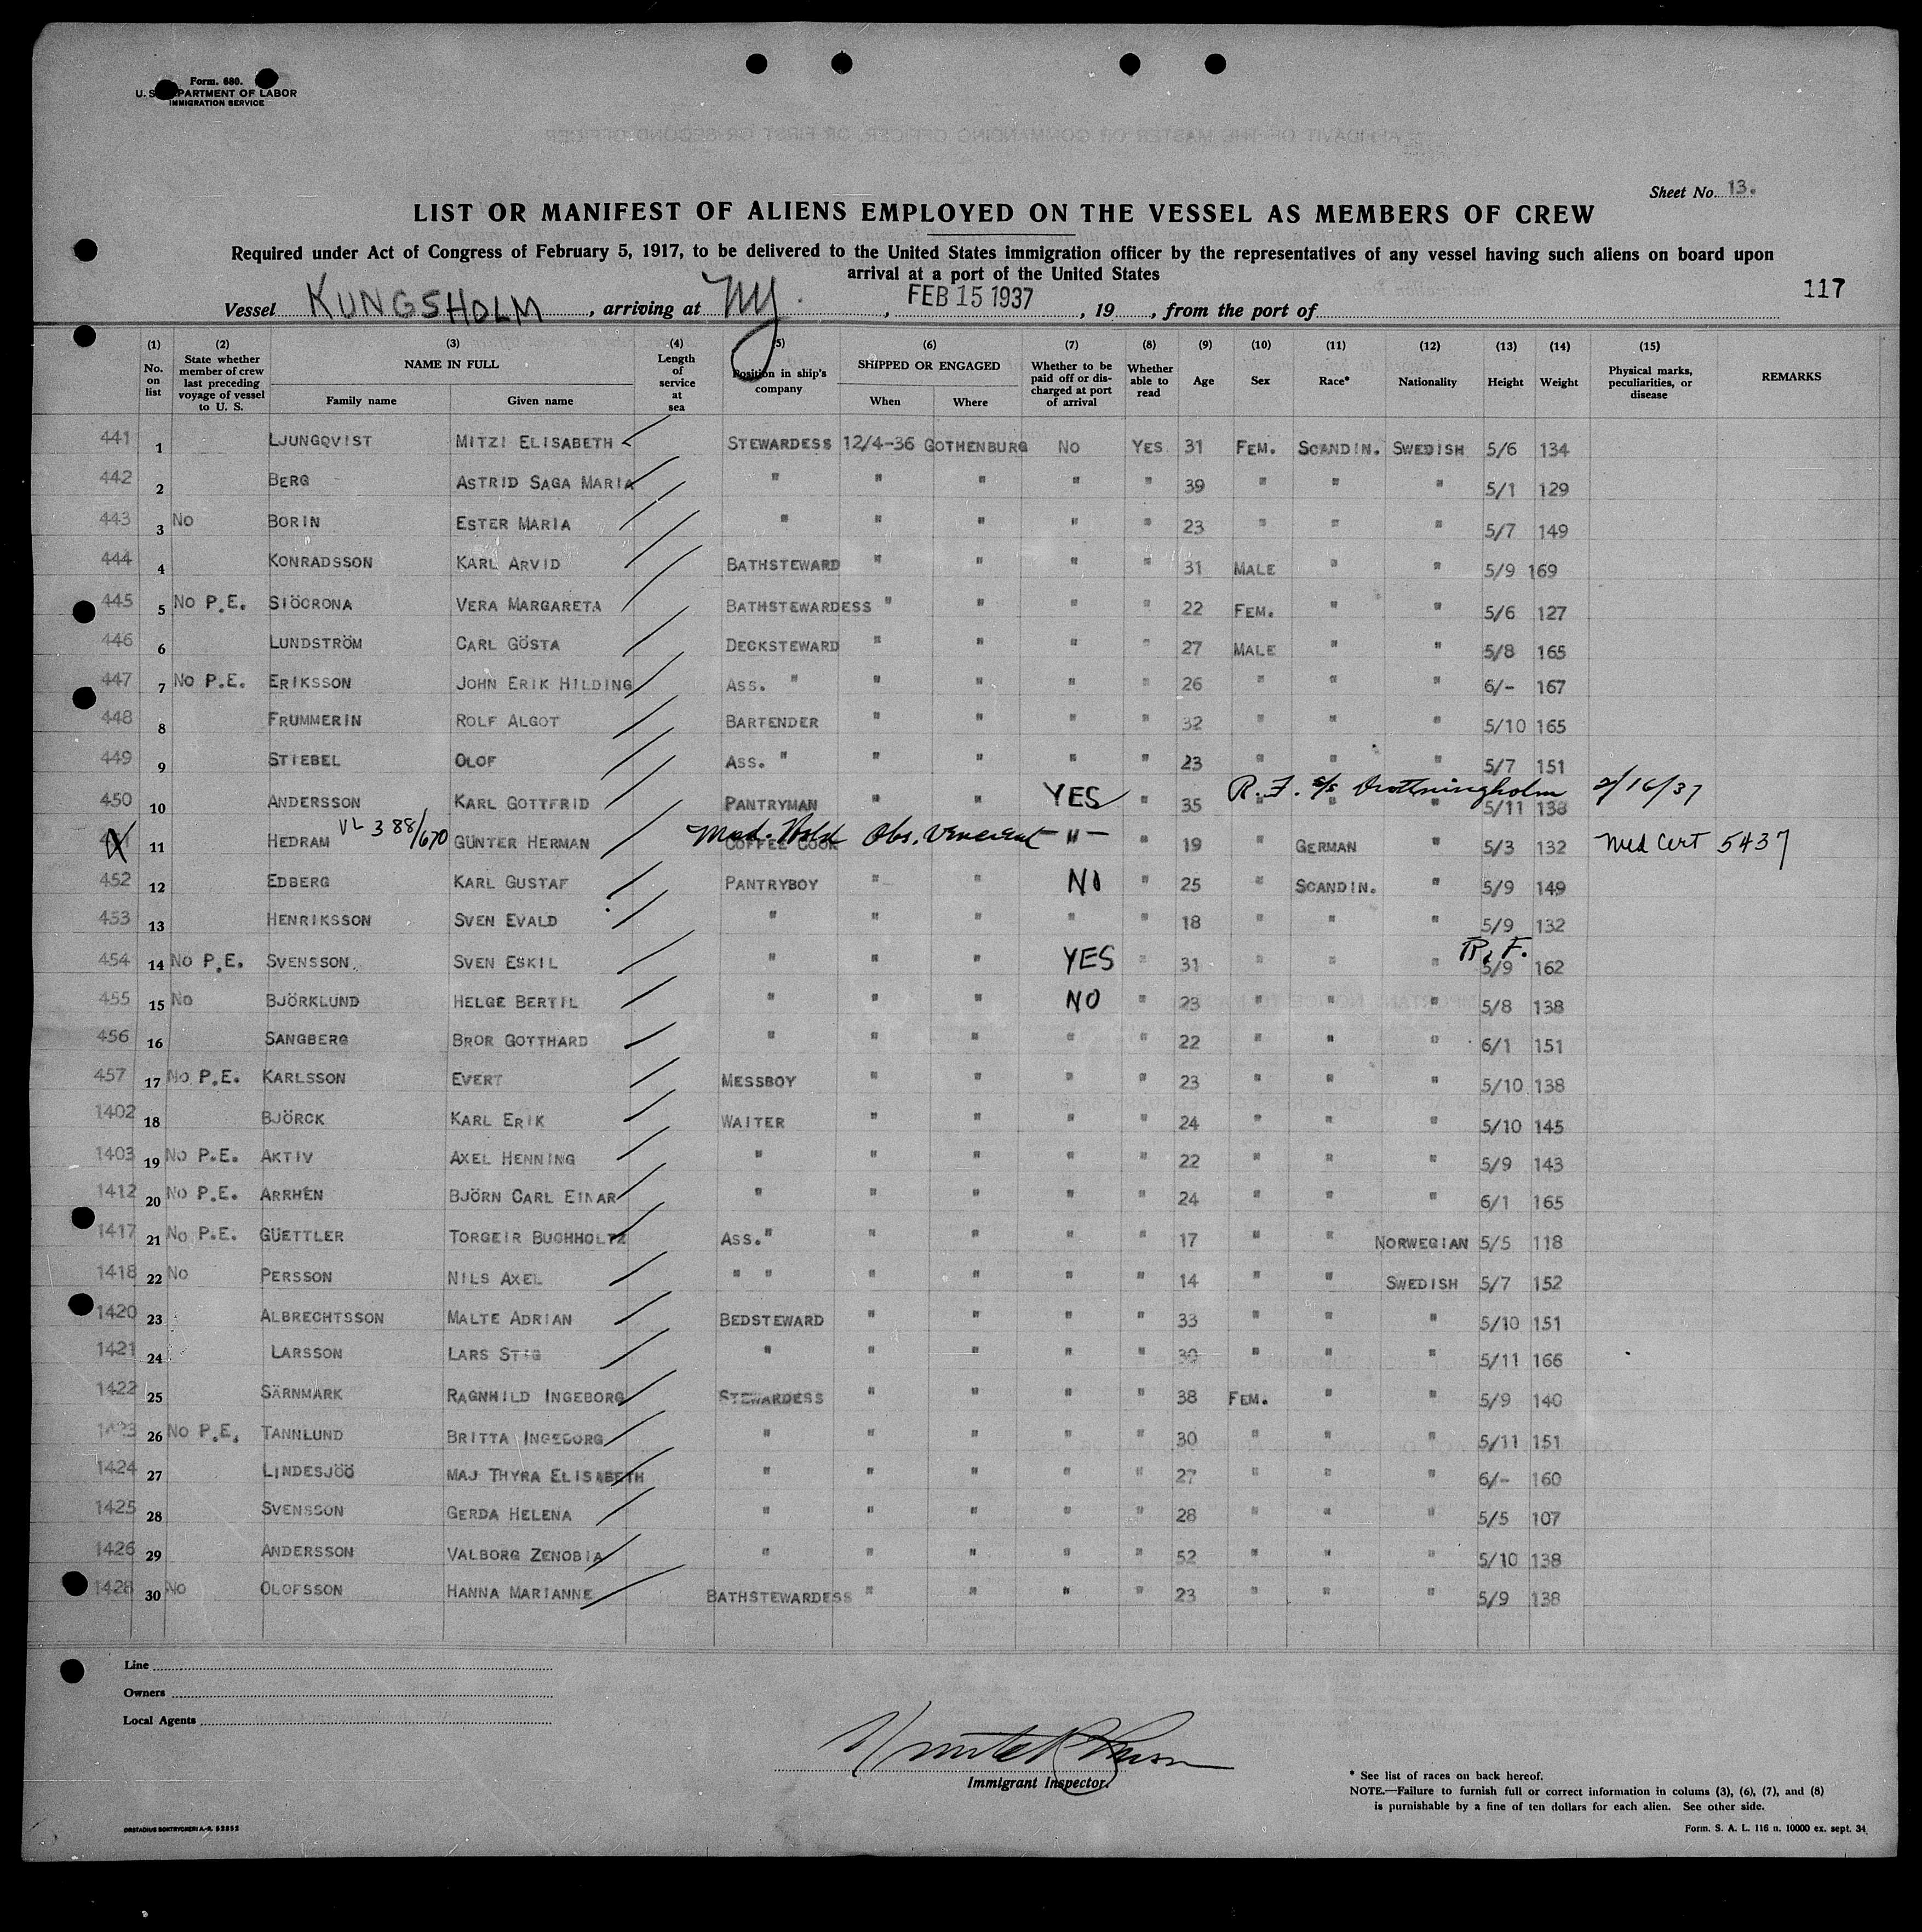 Form. 680.
U. S. DEPARTMENT OF LABOR
IMMIGRATION SERVICE
Sheet No. 13.
LIST OR MANIFEST OF ALIENS EMPLOYED ON THE VESSEL AS MEMBERS OF CREW
Required under Act of Congress of February 5, 1917, to be delivered to the United States immigration officer by the representatives of any vessel having such aliens on board upon
arrival at a port of the United States
117
Vessel KUNGSHOLM, arriving at NY., FEB 15 1937, 19, from the port of
(1) (2) (3) (4) (5) (6) (7) (8) (9) (10) (11) (12) (13) (14) (15)
No. on list State whether member of crew last preceding voyage of vessel to U. S. NAME IN FULL Family name Given name Length of service at sea Position in ship's company SHIPPED OR ENGAGED When Where Whether to be paid off or discharged at port of arrival Whether able to read Age Sex Race* Nationality Height Weight Physical marks, peculiarities, or disease REMARKS
441 1 LJUNGQVIST MITZI ELISABETH STEWARDESS 12/4-36 GOTHENBURG NO YES 31 FEM. SCANDIN. SWEDISH 5/6 134
442 2 BERG ASTRID SAGA MARIA " " " " " 39 " " " 5/1 129
443 3 NO BORIN ESTER MARIA " " " " " 23 " " " 5/7 149
444 4 KONRADSSON KARL ARVID BATHSTEWARD " " " " 31 MALE " " 5/9 169
445 5 NO P.E. SIÖCRONA VERA MARGARETA BATHSTEWARDESS " " " " 22 FEM. " " 5/6 127
446 6 LUNDSTRÖM CARL GÖSTA DECKSTEWARD " " " " 27 MALE " " 5/8 165
447 7 NO P.E. ERIKSSON JOHN ERIK HILDING ASS. " " " " " 26 " " " 6/- 167
448 8 FRUMMERIN ROLF ALGOT BARTENDER " " " " 32 " " " 5/10 165
449 9 STIEBEL OLOF ASS. " " " " " 23 " " " 5/7 151
450 10 ANDERSSON KARL GOTTFRID PANTRYMAN " " YES " 35 R.F. s/s Drottningholm " " " 5/11 138 2/16/37
11 HEDRAM VL 388/670 GÜNTER HERMAN COFFEE COOK Med. Hold Obs. Venereal - " - " 19 " GERMAN " 5/3 132 Med Cert 5437
452 12 EDBERG KARL GUSTAF PANTRYBOY " " NO " 25 " SCANDIN. " 5/9 149
453 13 HENRIKSSON SVEN EVALD " " " " " 18 " " " 5/9 132
454 14 NO P.E. SVENSSON SVEN ESKIL " " " YES " 31 " " " R.F. 5/9 162
455 15 NO BJÖRKLUND HELGE BERTIL " " " NO " 23 " " " 5/8 138
456 16 SANGBERG BROR GOTTHARD " " " " " 22 " " " 6/1 151
457 17 NO P.E. KARLSSON EVERT MESSBOY " " " " 23 " " " 5/10 138
1402 18 BJÖRCK KARL ERIK WAITER " " " " 24 " " " 5/10 145
1403 19 NO P.E. AKTIV AXEL HENNING " " " " " 22 " " " 5/9 143
1412 20 NO P.E. ARRHÉN BJÖRN CARL EINAR " " " " " 24 " " " 6/1 165
1417 21 NO P.E. GÜETTLER TORGEIR BUCHHOLTZ ASS." " " " " 17 " " NORWEGIAN 5/5 118
1418 22 NO PERSSON NILS AXEL " " " " " " 14 " " SWEDISH 5/7 152
1420 23 ALBRECHTSSON MALTE ADRIAN BEDSTEWARD " " " " 33 " " " 5/10 151
1421 24 LARSSON LARS STIG " " " " " 30 " " " 5/11 166
1422 25 SÄRNMARK RAGNHILD INGEBORG STEWARDESS " " " " 38 FEM. " " 5/9 140
1423 26 NO P.E. TANNLUND BRITTA INGEBORG " " " " " 30 " " " 5/11 151
1424 27 LINDESJÖÖ MAJ THYRA ELISABETH " " " " " 27 " " " 6/- 160
1425 28 SVENSSON GERDA HELENA " " " " " 28 " " " 5/5 107
1426 29 ANDERSSON VALBORG ZENOBIA " " " " " 52 " " " 5/10 138
1428 30 NO OLOFSSON HANNA MARIANNE BATHSTEWARDESS " " " " 23 " " " 5/9 138
Line
Owners
Local Agents
Immigrant Inspector.
* See list of races on back hereof.
NOTE.—Failure to furnish full or correct information in colums (3), (6), (7), and (8)
is purnishable by a fine of ten dollars for each alien. See other side.
ORSTADIUS BOKTRYCKERI A.-B. 52552
Form. S. A. L. 116 n. 10000 ex. sept. 34